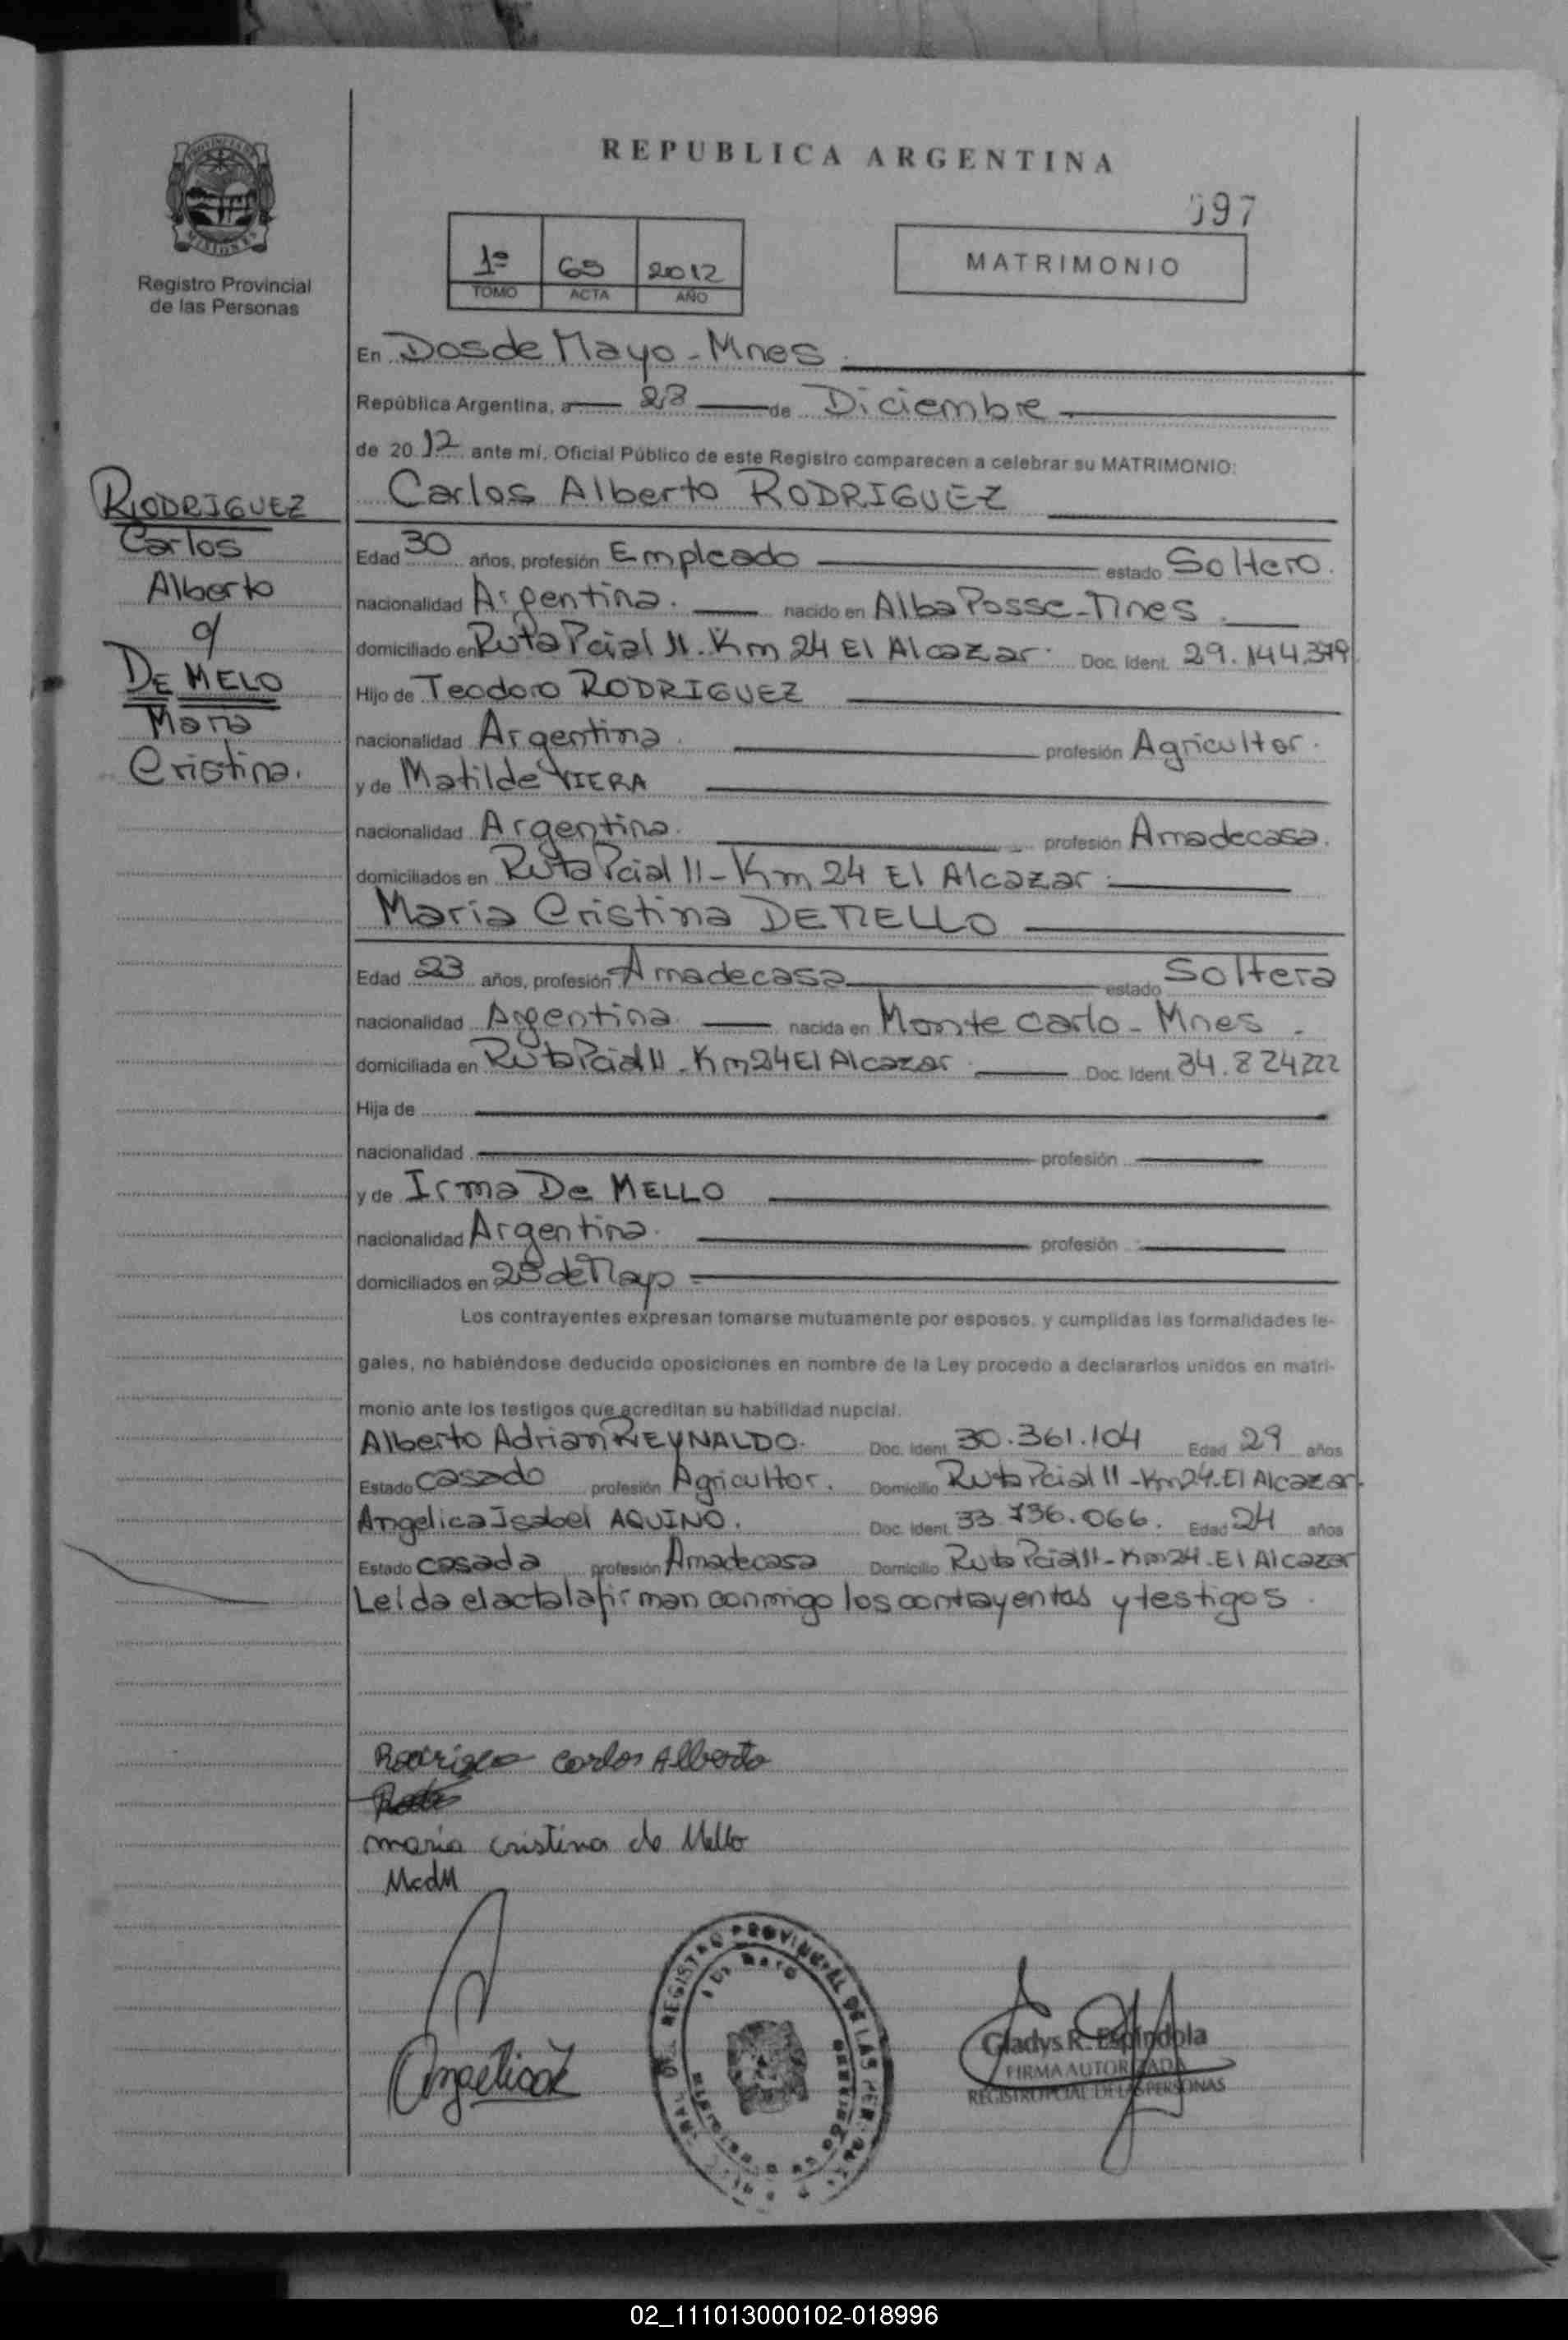 PROVINCIA DE
MISIONES
Registro Provincial
de las Personas
REPUBLICA ARGENTINA
97
1º 65 2012
TOMO ACTA AÑO
MATRIMONIO
En Dos de Mayo - Mnes
República Argentina, a 28 de Diciembre
de 2012 ante mi, Oficial Público de este Registro comparecen a celebrar su MATRIMONIO:
Carlos Alberto RODRIGUEZ
RODRIGUEZ
Carlos
Alberto
c/
DE MELO
Maria
Cristina.
Edad 30 años, profesión Empleado estado Soltero.
nacionalidad Argentina. nacido en Alba Posse - Mnes.
domiciliado en Ruta Pcial 11. Km 24 El Alcazar. Doc. Ident. 29.144.379
Hijo de Teodoro RODRIGUEZ
nacionalidad Argentina. profesión Agricultor.
y de Matilde VIERA
nacionalidad Argentina. profesión Amadecasa.
domiciliados en Ruta Pcial 11 - Km 24 El Alcazar.
Maria Cristina DE MELLO
Edad 23 años, profesión Amadecasa estado Soltera
nacionalidad Argentina. nacida en Monte carlo - Mnes.
domiciliada en Ruta Pcial 11 - Km 24 El Alcazar. Doc. Ident. 34.824.222
Hija de
nacionalidad profesión
y de Irma De MELLO
nacionalidad Argentina. profesión
domiciliados en 25 de Mayo
Los contrayentes expresan tomarse mutuamente por esposos, y cumplidas las formalidades le-
gales, no habiéndose deducido oposiciones en nombre de la Ley procedo a declararlos unidos en matri-
monio ante los testigos que acreditan su habilidad nupcial.
Alberto Adrian REYNALDO. Doc. Ident. 30.361.104 Edad 29 años
Estado casado profesión Agricultor. Domicilio Ruta Pcial 11 - Km 24. El Alcazar.
Angelica Isabel AQUINO. Doc. Ident. 33.736.066. Edad 24 años
Estado casada profesión Amadecasa Domicilio Ruta Pcial 11 - Km 24 - El Alcazar
Leida el acta la firman conmigo los contrayentes y testigos.
Rodriguez Carlos Alberto
maria cristina de Mello
McdM
Angelica
REGISTRO PROVINCIAL DE LAS PERSONAS
Gladys R. Espindola
FIRMA AUTORIZADA
REGISTRO PCIAL DE LAS PERSONAS
02_111013000102-018996